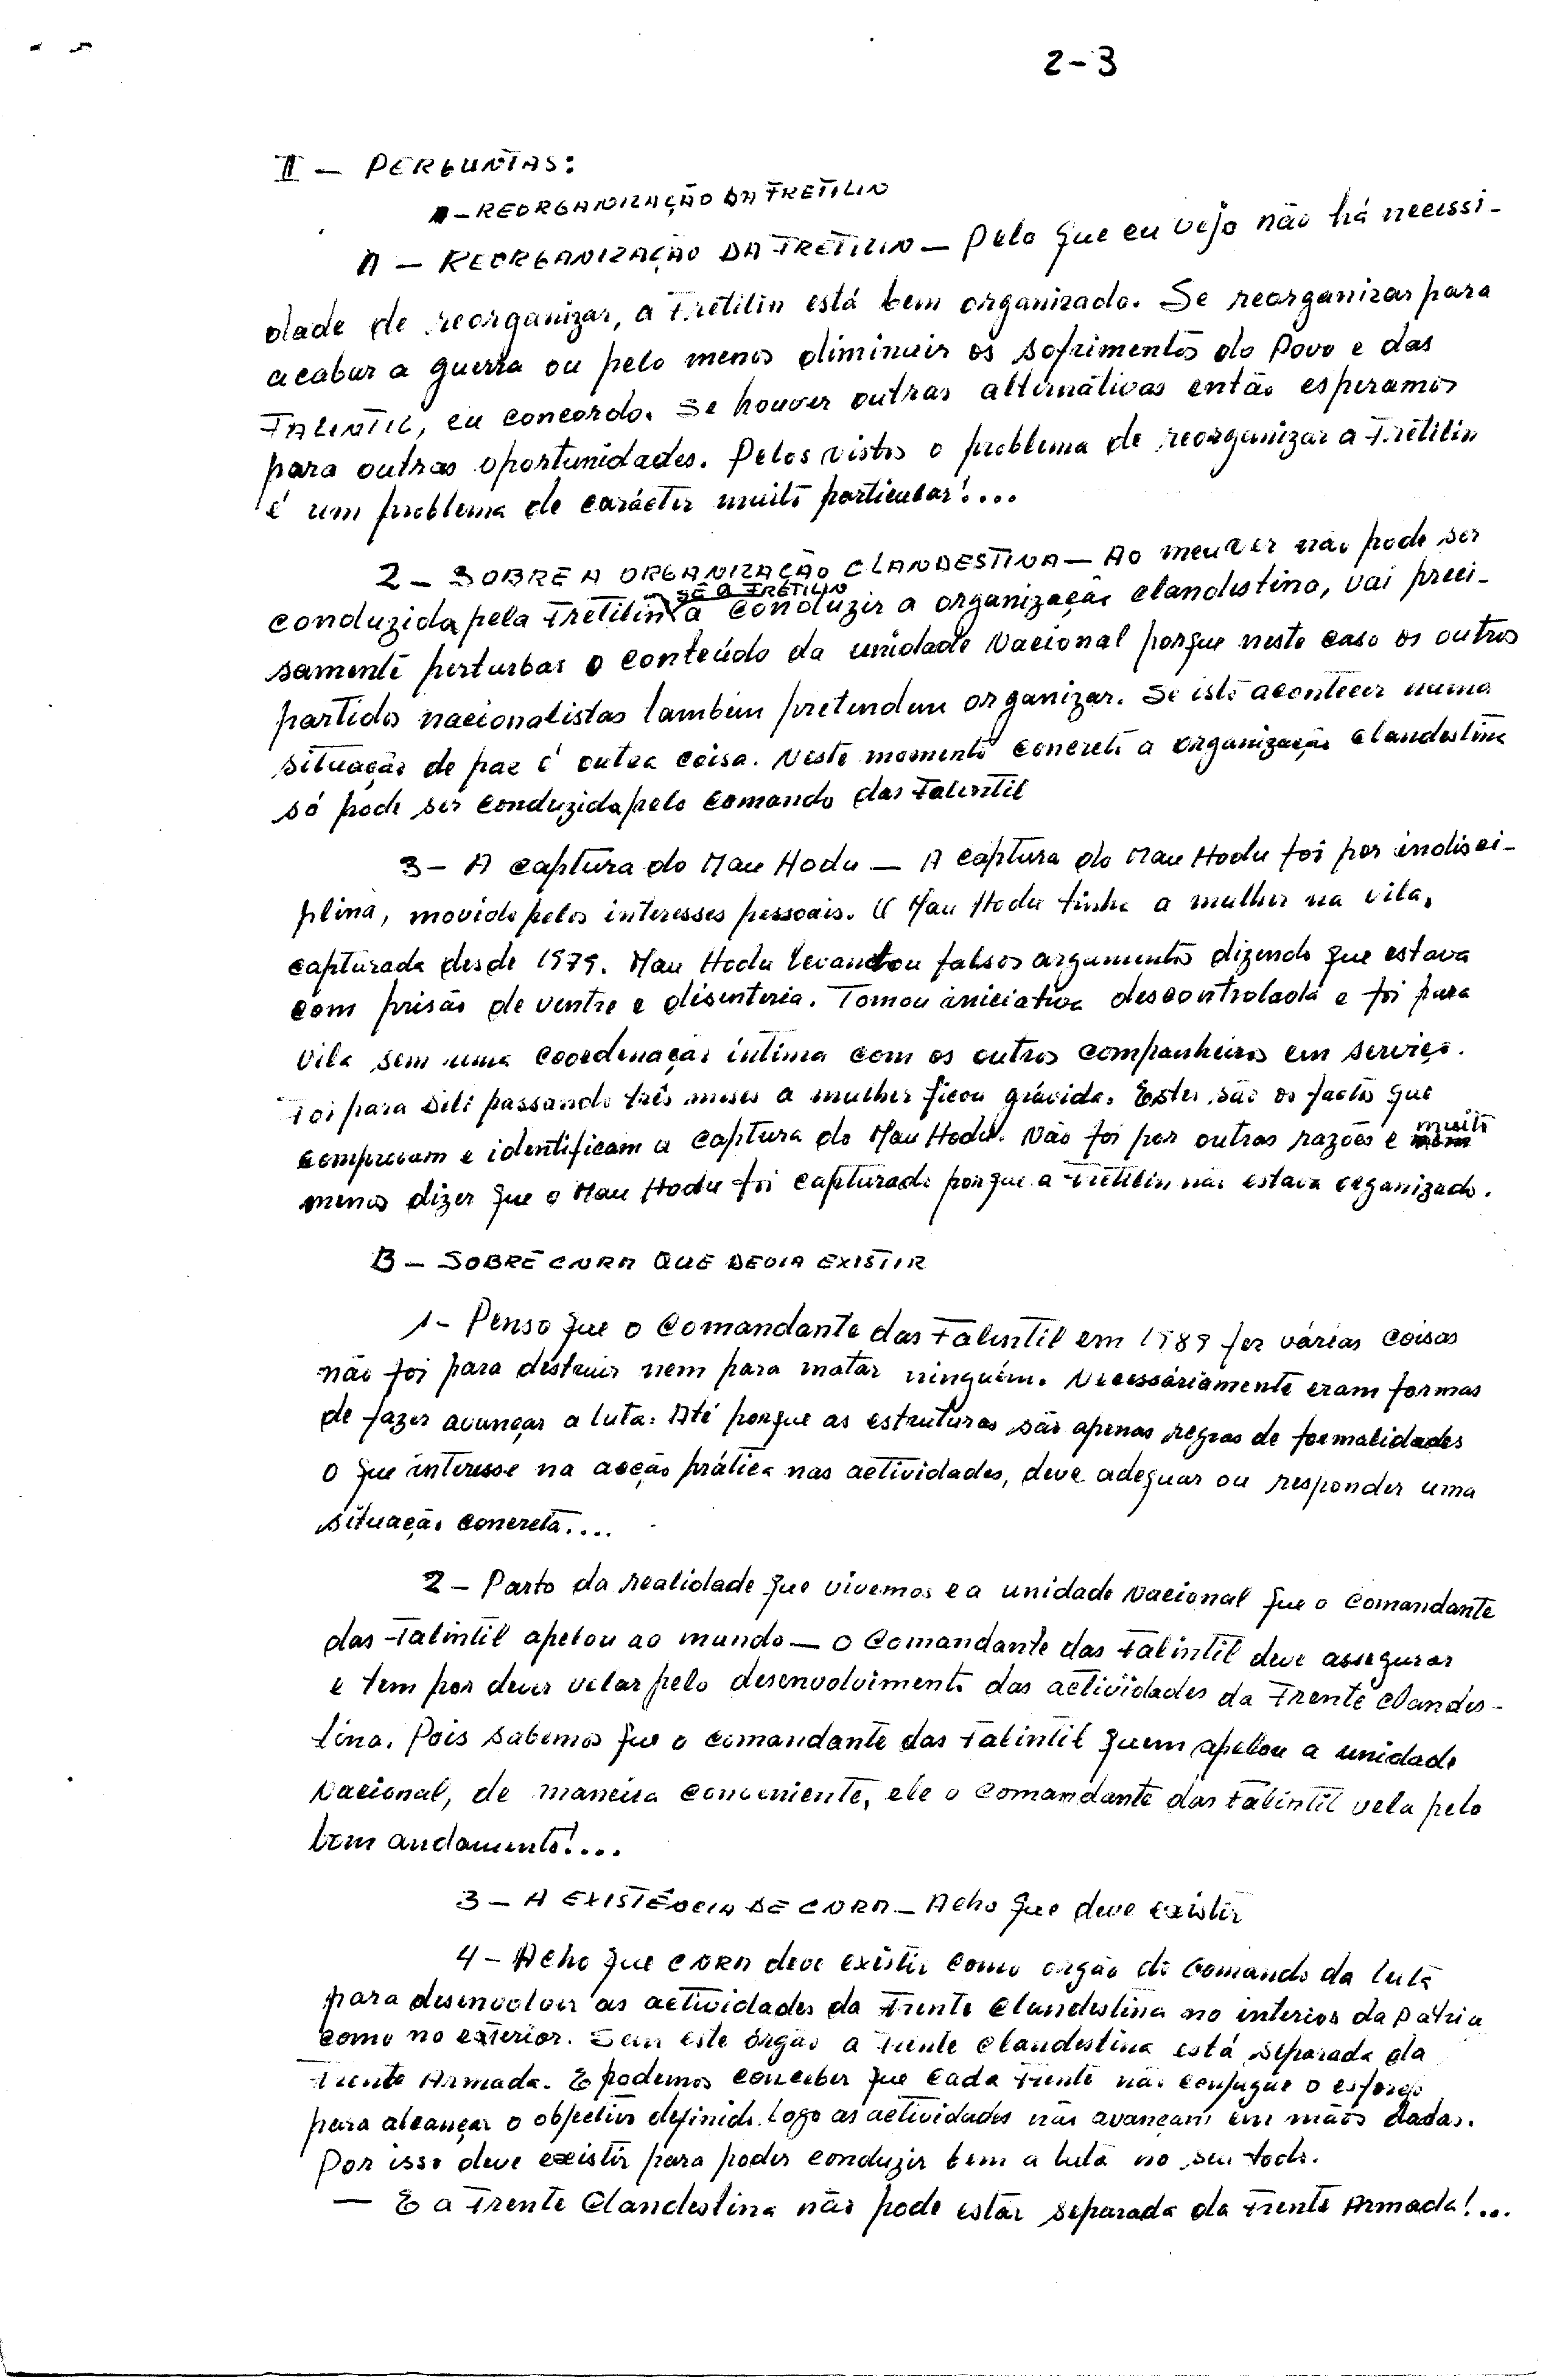 2-3
II — PERGUNTAS:
- REORGANIZAÇÃO DA FRETILIN
A — REORGANIZAÇÃO DA FRETILIN — Pelo que eu vejo não há necessi-
dade de reorganizar, a Fretilin está bem organizado. Se reorganizar para
acabar a guerra ou pelo menos diminuir os sofrimentos do Povo e das
FALINTIL, eu concordo. Se houver outras alternátivas então esperamos
para outras oportunidades. Pelos vistos o problema de reorganizar a Fretilin
é um problema de carácter muito particular!...
2 — SOBRE A ORGANIZAÇÃO CLANDESTINA — Ao meu ver não pode ser
SE A FRETILIN
conduzida pela Fretilin a conduzir a organização clandestina, vai preci-
samente perturbar o conteúdo da unidade Nacional porque neste caso os outros
partidos nacionalistas também pretendem organizar. Se isto acontecer numa
situação de paz é outra coisa. Neste momento concreto a organização clandestina
só pode ser conduzida pelo comando das Falintil
3 — A captura do Mau Hodu — A captura do Mau Hodu foi por indisci-
plina, movido pelos interesses pessoais. O Mau Hodu tinha a mulher na vila,
capturada desde 1979. Mau Hodu levantou falsos argumentos dizendo que estava
com prisão de ventre e disenteria. Tomou iniciativa descontrolada e foi para
vila sem uma coordenação íntima com os outros companheiros em serviço.
Foi para Dili passando três meses a mulher ficou grávida. Estes são os factos que
comprovam e identificam a captura do Mau Hodu. Não foi por outras razões e muito
menos dizer que o Mau Hodu foi capturado porque a Fretilin não estava organizado.
B — SOBRE CNRM QUE DEVIA EXISTIR
1- Penso que o Comandante das Falintil em 1989 fez várias coisas
não foi para destruir nem para matar ninguém. Necessáriamente eram formas
de fazer avançar a luta. Até porque as estruturas são apenas regras de formalidades
o que interesse na acção prática nas actividades, deve adequar ou responder uma
situação concreta....
2 — Parto da realidade que vivemos e a unidade Nacional que o Comandante
das Falintil apelou ao mundo — o Comandante das Falintil deve assegurar
e tem por dever velar pelo desenvolvimento das actividades da Frente Clandes-
tina. Pois sabemos que o comandante das Falintil quem apelou a unidade
Nacional, de maneira conveniente, ele o Comandante das Falintil vela pelo
bom andamento!....
3 — A EXISTÊNCIA DE CNRM — Acho que deve existir
4 — Acho que CNRM deve existir como orgão do Comando da luta
para desenvolver as actividades da Frente Clandestina no interior da Pátria
como no exterior. Sem este órgão a Frente Clandestina está separada da
Frente Armada. E podemos conceber que cada Frente não conjugue o esforço
para alcançar o objectivo definido. Logo as actividades não avançam em mãos dadas.
Por isso deve existir para poder conduzir bem a luta no seu todo.
— E a Frente Clandestina não pode estar separada da Frente Armada!...